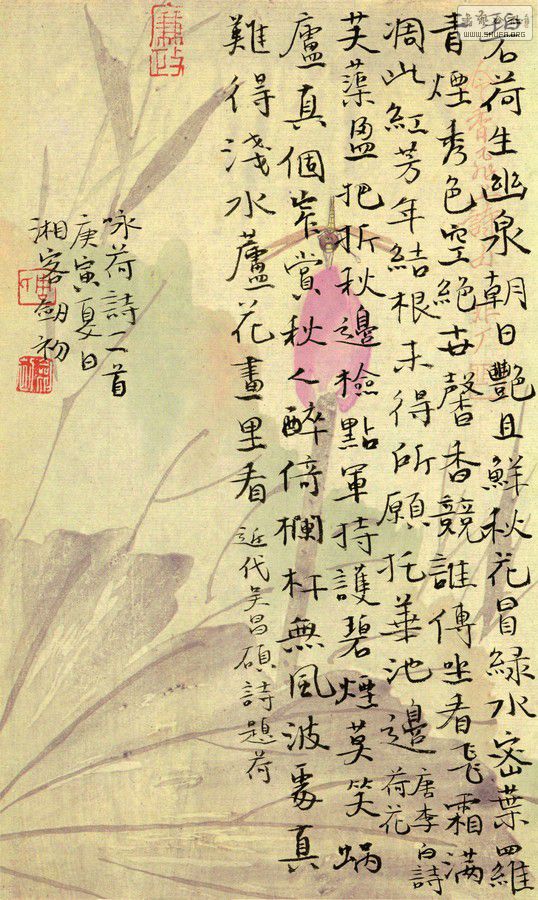 碧荷生幽泉朝日艷且鮮秋花冒綠水密葉羅
青煙秀色空絕世馨香競誰傳坐看飛霜滿
凋此紅芳年結根未得所願托華池邊
唐李白詩
荷花
芙蕖盈把折秋邊檢點軍持護碧煙莫笑蝸
廬真個窄賞秋人醉倚欄杆無風波處真
難得淺水蘆花畫里看 近代吴昌碩詩題荷
咏荷詩二首
庚寅夏日
湘客劍初
廉政